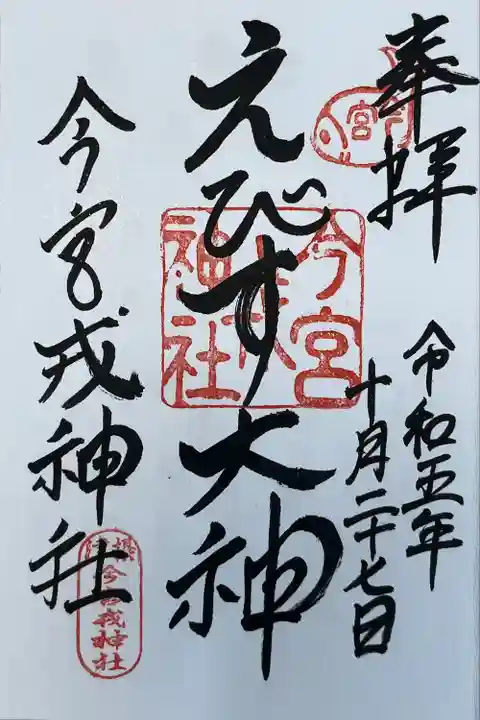 奉拝
令和五年
十月二十七日
えびす大神
今宮戎神社
今宮
今宮戎神社
今宮戎神社